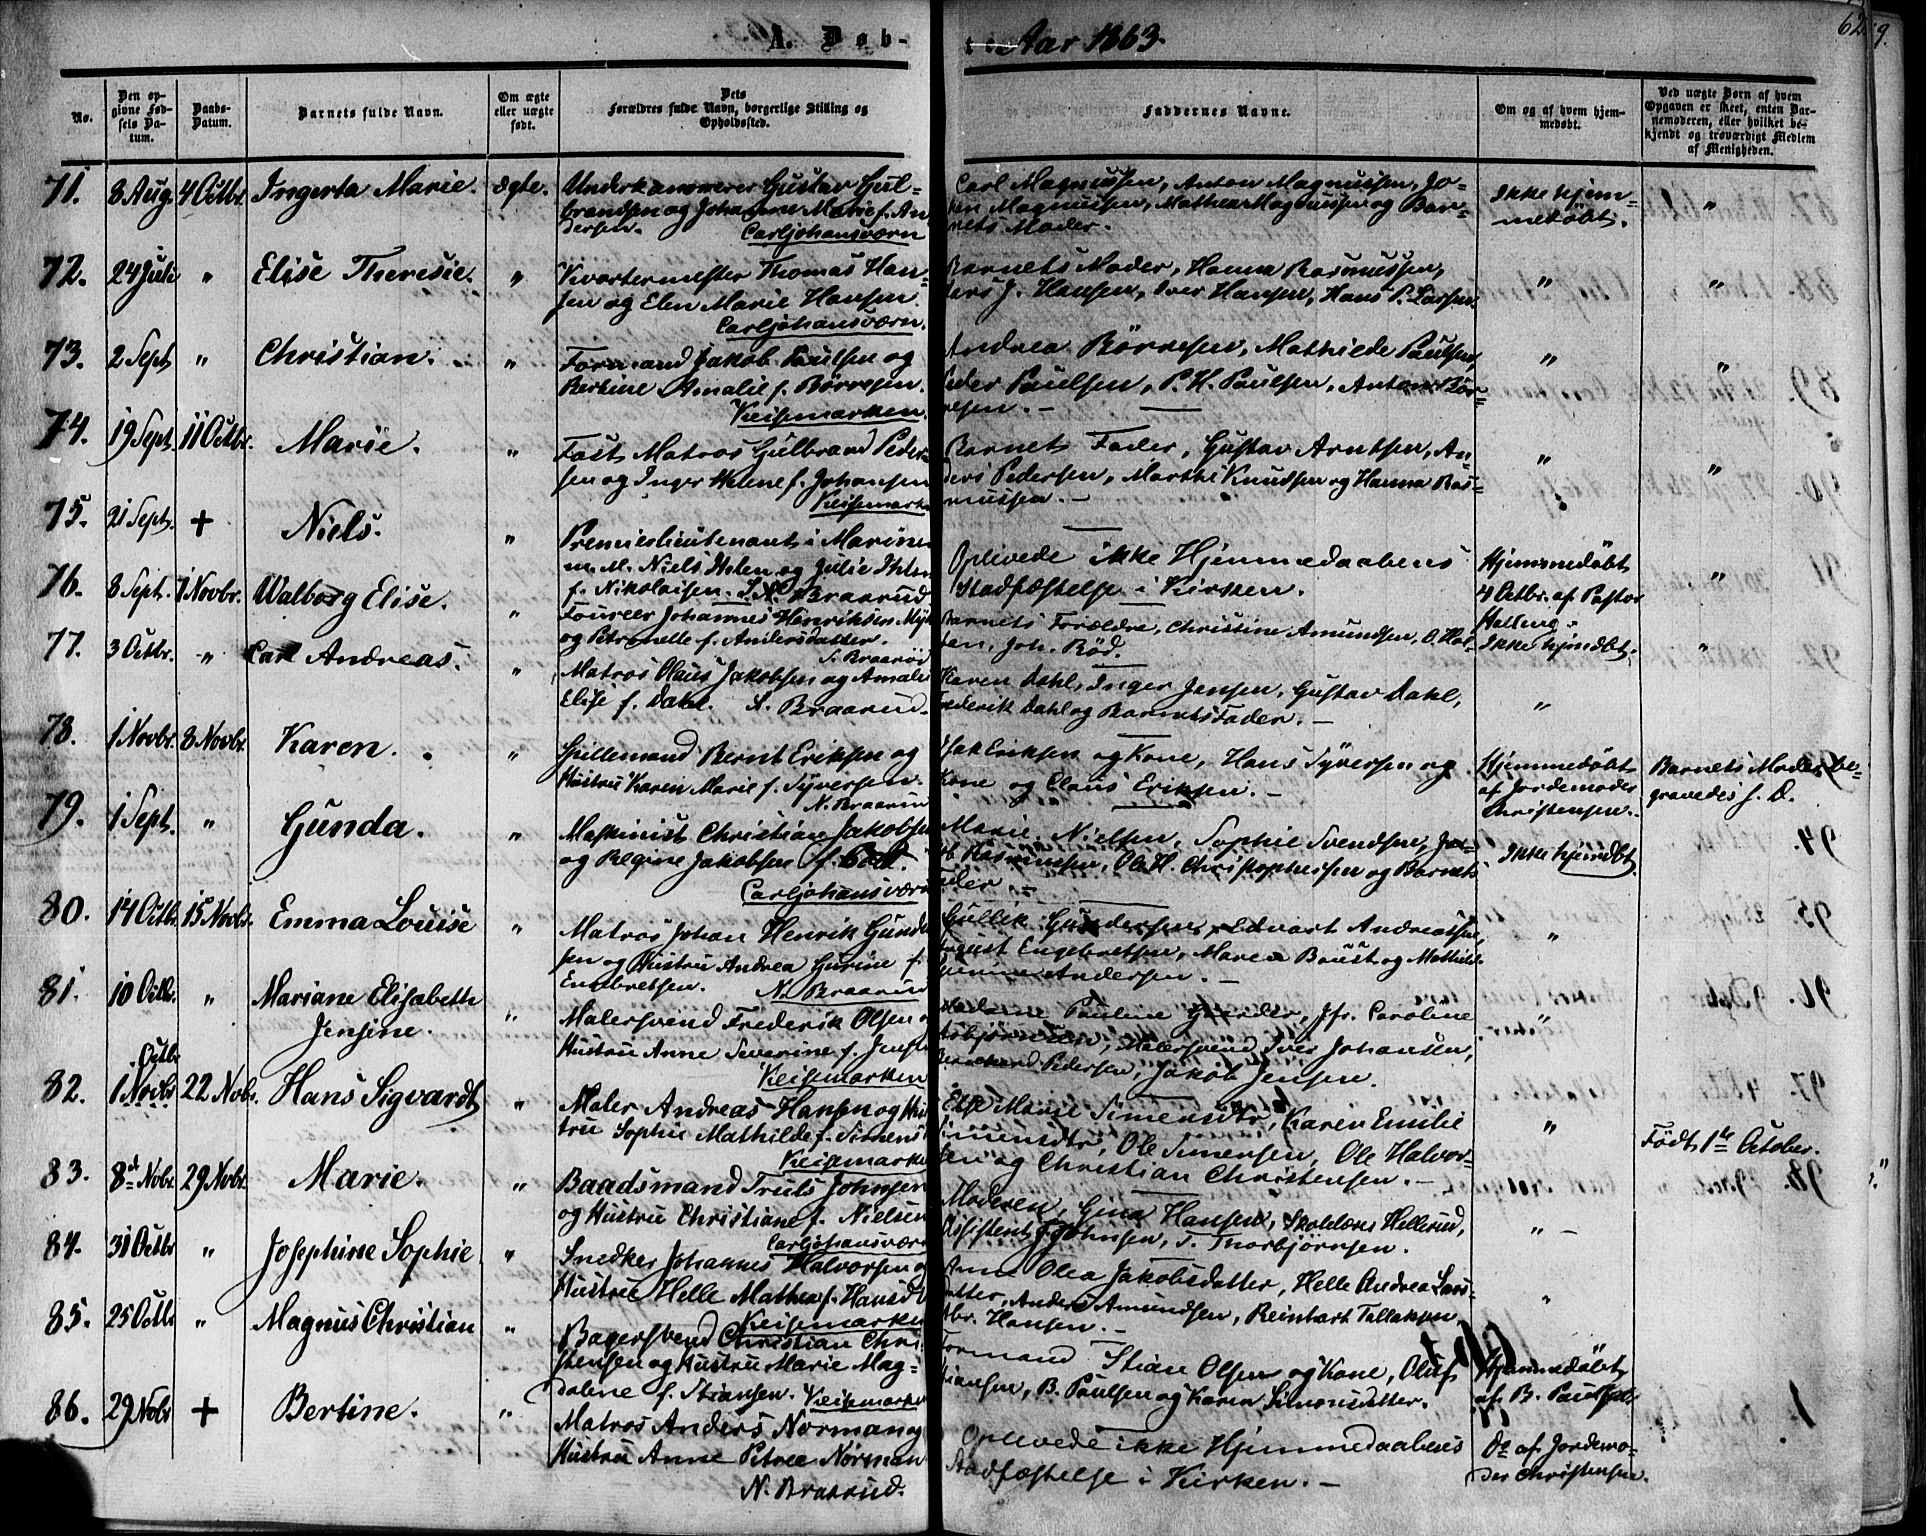 A. Døb-
te Aar 1863.
62
9.
No.
Den op-
givne Fød-
sels Da-
tum.
Daabs-
Datum.
Barnets fulde Navn.
Om ægte
eller uægte
født.
Dets
Forældres fulde Navn, borgerlige Stilling og
Opholdssted.
Faddernes Navne.
Om og af hvem hjem-
medøbt.
Ved uægte Børn af hvem
Opgaven er skeet, enten Bar-
nemoderen, eller hvilket be-
kjendt og troværdigt Medlem
af Menigheden.
71. 8 Aug. 4 Octbr. Ingerta Marie. ægte.
Underkanonerer Gustav Gul-
brandsen og Johanne Marie f. An
dersen. Carljohansværn
Carl Magnussen, Anton Magnussen, Jo-
Magnussen, Mathea Magnussen og Bar-
nets Moder.
Ikke hjem-
medøbt. "
72. 24 Juli " Elise Theresie. "
Kvartermester Thomas Han-
sen og Elen Marie Hansen
Carljohansværn.
Barnets Moder, Hanna Rasmussen,
Lars J. Hansen, Iver Hansen, Hans P. Larsen.
" "
73. 2 Sept " Christian. "
Formand Jakob Paulsen og
Bertine Amalie f. Börresen.
Keisemarken.
Andrea Börresen, Mathilde Paulsen,
Peder Paulsen, P. H. Paulsen, Anton Bör-
resen. -
" "
74. 19 Sept. 11 Octbr. Marie. "
Fast Matros Gulbrand Peder-
sen og Inger Helene f. Johansen
Keisemark.
Barnets Fader, Gustav Arntsen, An-
ders Pedersen, Marthe Knudsen og Hanna Ras-
mussen. -
" "
75. 21 Sept. + Niels. "
Premierlieutenant i Marinen
m. M. Niels Ihlen og Julie Ihlen
f. Nikolaisen. S. N. Braarud
Oplevede ikke Hjemmedaabens
Stadfæstelse i Kirken.
Hjemmedøbt
4 Octbr. af Pastor
Halling. "
76. 8 Sept. 1 Novbr. Walborg Elise. "
Foureer Johannes Henriksen
og Petronelle f. Andersdatter.
S. Braarød
Barnets Forældre, Christine Amundsen, O. Hol-
ten, Joh. Röd.
Ikke hjemdbt. "
77. 3 Octbr. " Carl Andreas. "
Matros Olaus Jakobsen og Amalie
Elise f. Dahl. S. Braarud.
Karen Dahl, Inger Jensen, Gustav Dahl,
Frederik Dahl og Barnets Fader. -
"
78. 1 Novbr. 8 Novbr. Karen. "
Spillemand Bernt Eriksen og
Hustru Karen Marie f. Syversen.
N. Braarud
Isak Eriksen og Kone, Hans Syversen og
Kone og Claus Eriksen. -
Hjemmedøbt
af Jordemoder
Christensen.
Barnets Moder be-
gravedes s. D.
79. 1 Sept. " Gunda. "
Maskinist Christian Jakobsen
og Regine Jakobsen f.
Carljohansværn
Marie Nielsen, Sophie Svendsen,
Rasmussen, Ole H. Christophersen og Barnets
Fader. -
Ikke hjemdbt.
80. 14 Octbr. 15 Novbr. Emma Louise "
Matros Johan Henrik Gunder
sen og Hustru Andrea Gurine f.
Engebretsen. N. Braarud
Gullik Gundersen, Edvart Andreassen,
August Engebretsen, Maren Baust og Mathilde
Andersen. -
"
81. 10 Octbr. " Mariane Elisabeth
Jensine. "
Malersvend Frederik Olsen og
Hustru Anne Severine f. Jensen
Keisemarken
Madame Pauline Gjerder, Jfr. Caroline
Asbjørnsen, Malersvend Iver Johansen,
Bernhard Pedersen, Jakob Jensen.
"
82. Octbr 1 Novbr 22 Nobr. Hans Sigvardt "
Maler Andreas Hansen og Hus
tru Sophie Mathilde f. Simens
Keisemarken
Else Marie Simensdtr, Karen Emilie
Simensdtr, Ole Simensen, Ole Halvor-
sen og Christian Christensen. -
"
Født 1te October.
83. 8de Nobr. 29 Nobr. Marie. "
Baadsmand Truls Johnsen
og Hustru Christiane f. Nielsen
Carljohansværn
Moderen, Gina Hansen, Skolelærer Hellerud,
Assistent Johnsen, T. Thorbjørnsen.
" -
84. 31 Octbr " Josephine Sophie. "
Snedker Johannes Halvorsen og
Hustru Helle Mathea f. Hansd
Keisemarken
Anne Olea Jakobsdatter, Helle Andrea Lars-
datter, Anders Amundsen, Reinhart Tallaksen,
Hansen. -
"
85. 25 Octbr " Magnus Christian "
Bagersvend Christian Chri-
stensen og Hustru Marie Mag-
dalene f. Stiansen. Keisemarken
Formand Stian Olsen og Kone, Oluf
Stiansen, B. Paulsen og Karen Simonsdatter.
Hjemmedøbt
af B. Paulsen.
"
86. 29 Nobr + Bertine. "
Matros Anders Norman og
Hustru Anne Petrea Norman
N. Braarud.
Oplevede ikke Hjemmedaabens
Stadfæstelse i Kirken. -
Do af Jordemo-
der Christensen.